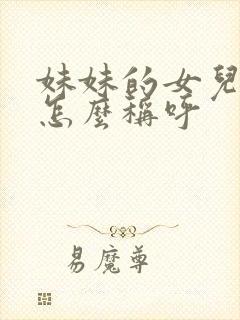 妹妹的女兒
怎麼稱呼
易魔尊